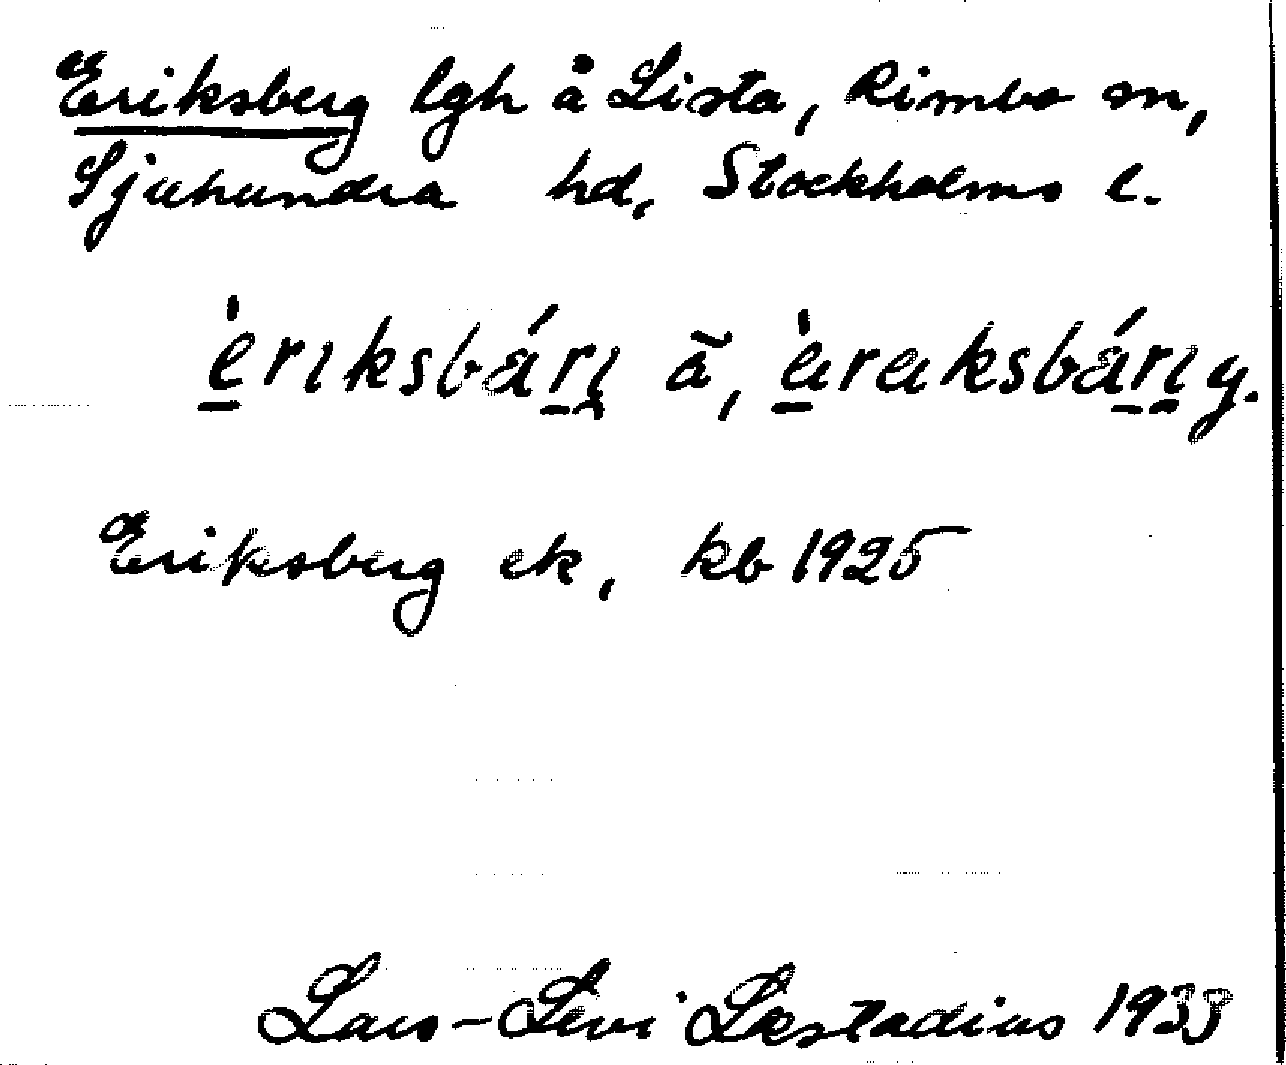 Eriksberg lgh å Lista, Rimbo sn,
Sjuhundra hd, Stockholms l.
èriksbárị ã, àraksbárị y.
Eriksberg ek, kb 1925
Lars-Levi Læstadius 1933